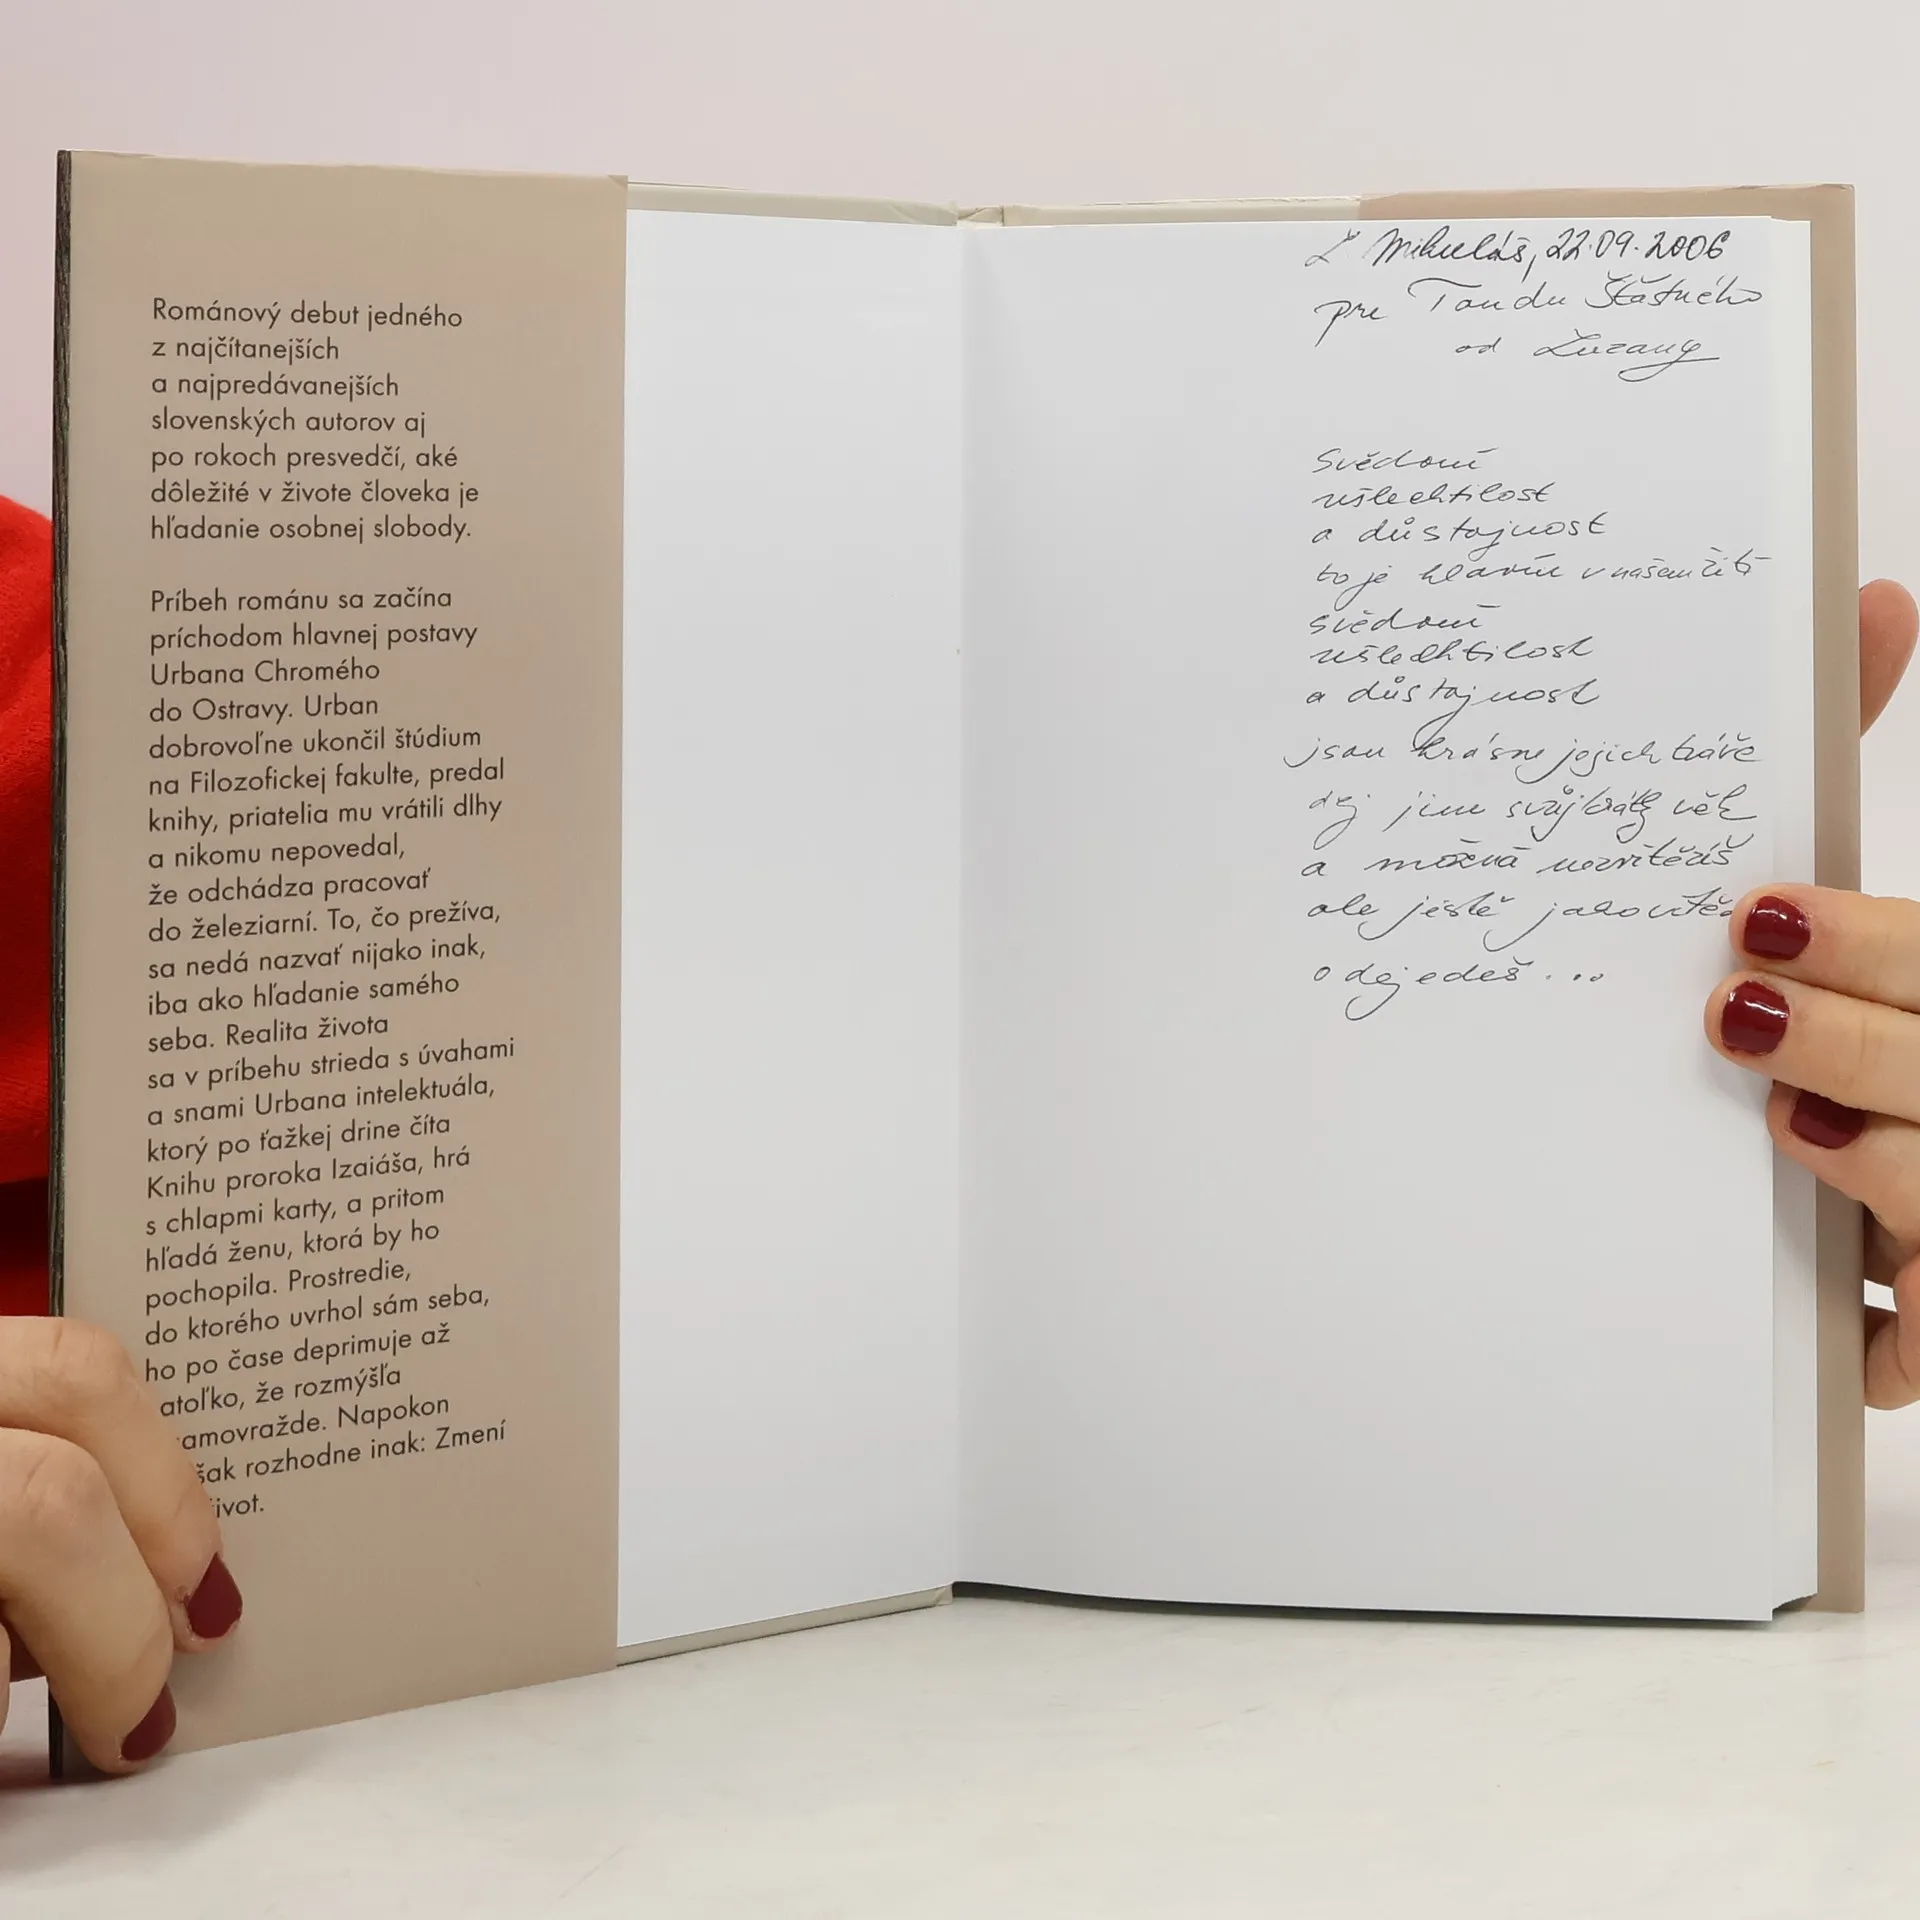 Románový debut jedného
z najčítanejších
a najpredávanejších
slovenských autorov aj
po rokoch presvedčí, aké
dôležité v živote človeka je
hľadanie osobnej slobody.
Príbeh románu sa začína
príchodom hlavnej postavy
Urbana Chromého
do Ostravy. Urban
dobrovoľne ukončil štúdium
na Filozofickej fakulte, predal
knihy, priatelia mu vrátili dlhy
a nikomu nepovedal,
že odchádza pracovať
do železiarní. To, čo prežíva,
sa nedá nazvať nijako inak,
iba ako hľadanie samého
seba. Realita života
sa v príbehu strieda s úvahami
a snami Urbana intelektuála,
ktorý po ťažkej drine číta
Knihu proroka Izaiáša, hrá
s chlapmi karty, a pritom
hľadá ženu, ktorá by ho
pochopila. Prostredie,
do ktorého uvrhol sám seba,
ho po čase deprimuje až
atoľko, že rozmýšľa
amovražde. Napokon
šak rozhodne inak: Zmení
ivot.
L Mikuláš, 22.09.2006
pre Tondu Šťastného
od Zuzany
Svědomí
ušlechtilost
a důstojnost
to je hlavní v našem žití
svědomí
ušlechtilost
a důstojnost
jsou krásne jejich tváře
dej jim svůj krátký věk
a možná nezvítězíš
ale ještě jako vítěz
odejedeš...